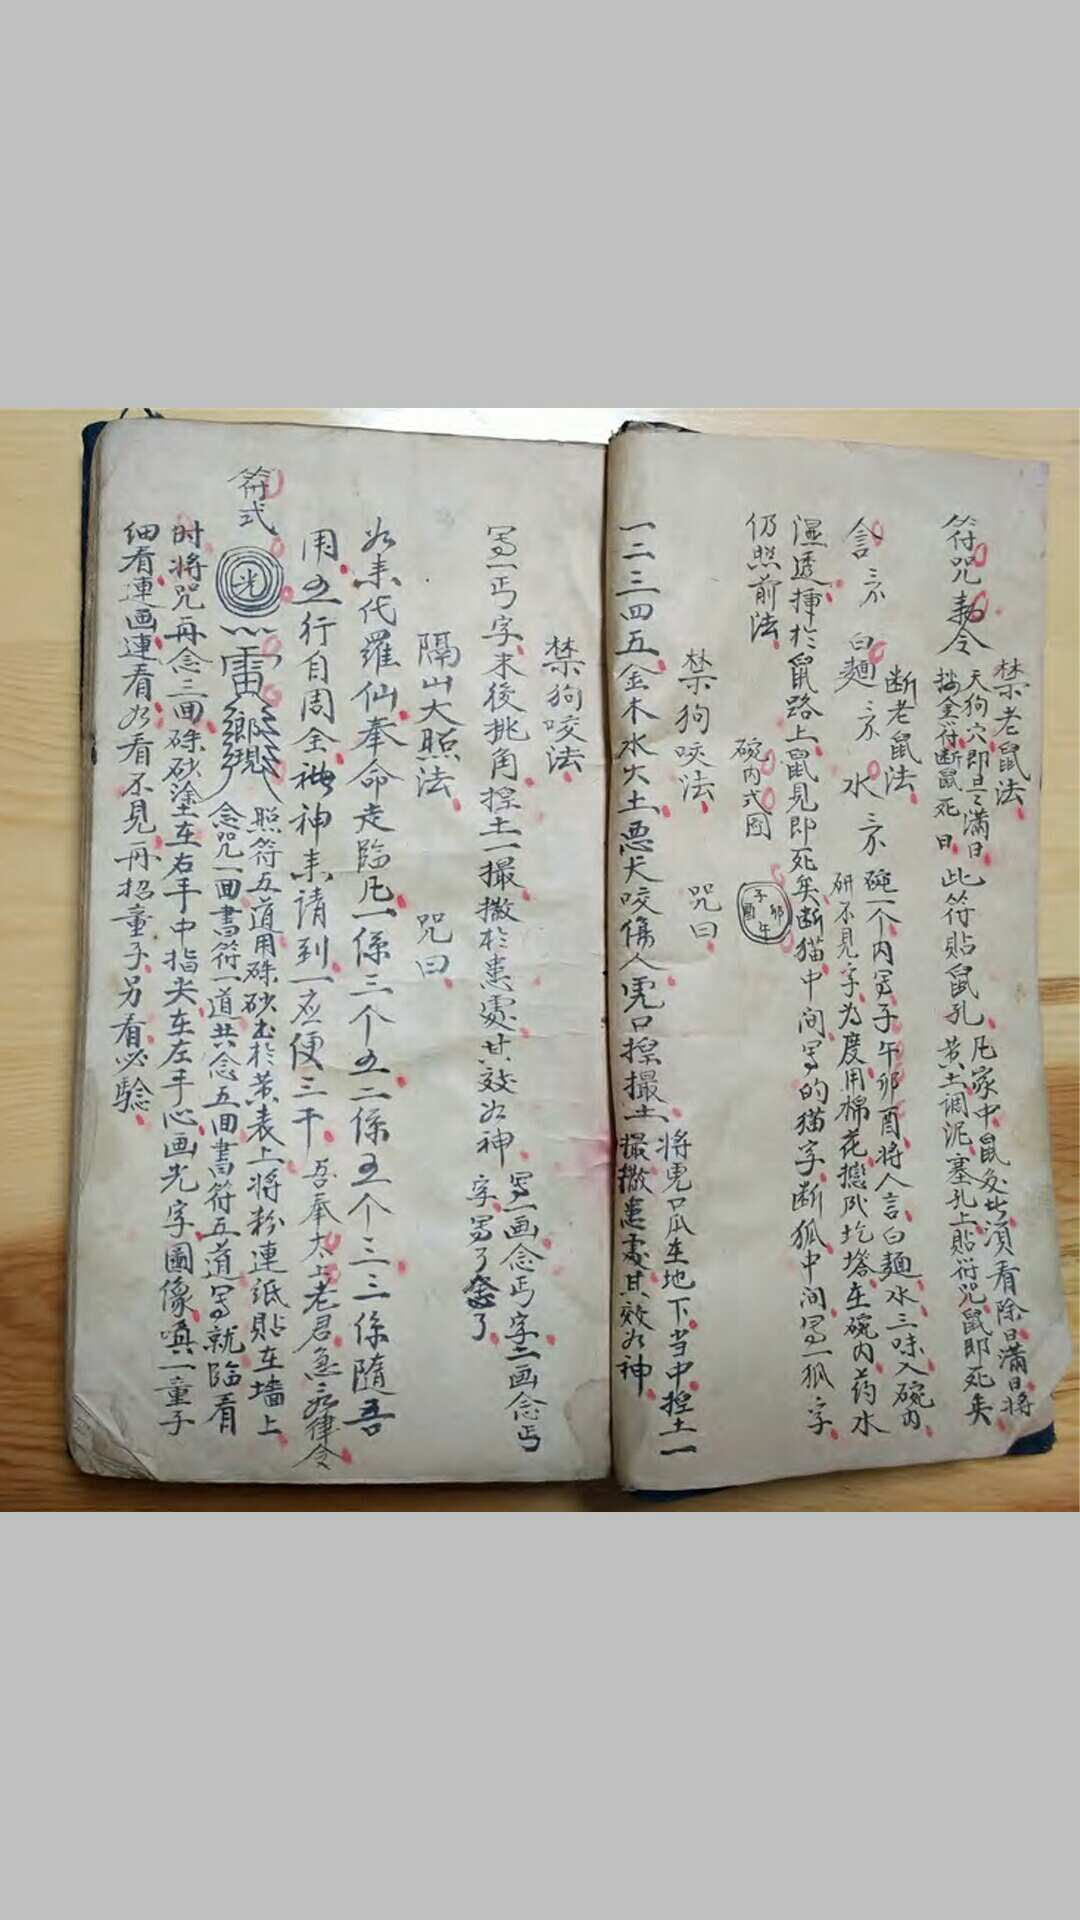 禁老鼠法
符咒勅令
天狗穴即旦滿日
金符断鼠死日
此符貼鼠孔
凡家中鼠多出須看除日滿日將
黄土调泥塞孔上貼符咒鼠即死矣
断老鼠法
言亽 白麵亽 水亽
碗一个内写子午卯酉將人言白麵水三味入碗内
研不見字为度用棉花 疙塔在碗内药水
濕透挿於鼠路上鼠見即死矣断猫中间写的猫字断狐中间写一狐字
仍照前法
碗内式图
子卯午酉
禁狗咬法
咒曰
一二三四五金木水火土恶犬咬傷人虎口揑撮土
將虎口爪在地下当中揑土一
撮撒患處其效如神
禁狗咬法
写一丐字末後挑角揑土一撮撒於患處其效如神
写一画念丐字二画念丐
字写了念了
隔山大照法
咒曰
如来代羅仙奉命走臨凡一係三个五二係五个三三係隨吾
用五行自周全 神来請到一应便三干
吾奉太上老君急急如律令
符式
光
雷
鄉現
照符五道用硃砂出於黄表上將粉連紙貼在墙上
念咒一回書符一道共念五回書符五道写就臨看
时將咒再念三回硃砂塗在右手中指尖在左手心画光字圖像嗔一童子
细看連画連看如看不見再招童子另看必驗